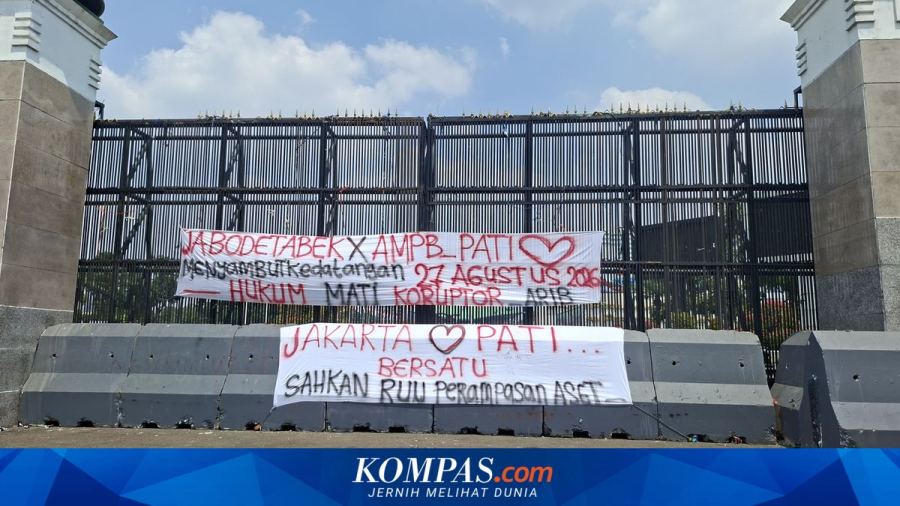 JABODETABEK X AMPB_PATI
MENYAMBUT Kedatangan 27 AGUSTUS 2026
— HUKUM MATI KORUPTOR
JAKARTA PATI...
BERSATU
SAHKAN RUU Perampasan ASET
KOMPAS.com
JERNIH MELIHAT DUNIA